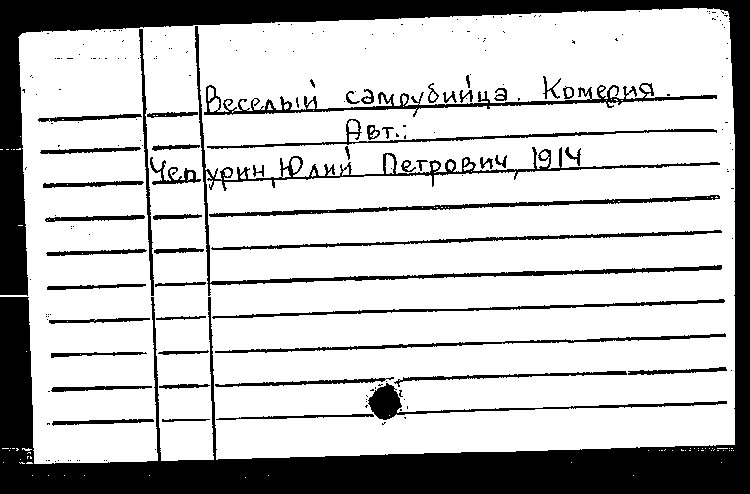 Веселый самоубийца. Комедия.
Авт.:
Чепурин, Юлий Петрович, 1914